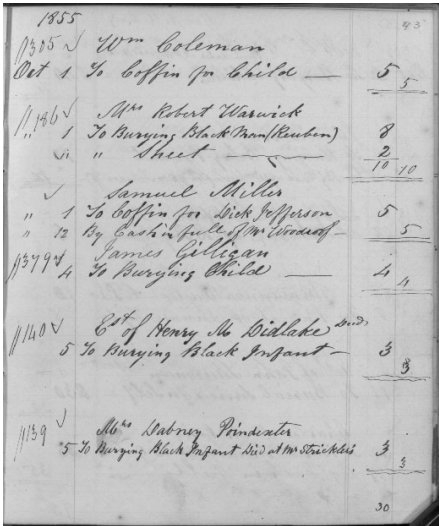 1855 45
305 Wm Coleman
Oct 1 To Coffin for Child — 5
5
186 Mrs Robert Warwick
" 1 To Burying Black Man (Reuben) 8
" " Sheet — 2
10 10
Samuel Miller
" 1 To Coffin for Dick Jefferson 5
" 12 By Cash in full of Mr Woodrof — 5
379 James Gilligan
4 To Burying Child — 4
4
140 Est of Henry M Didlake Decd
5 To Burying Black Infant — 3
3
139 Mrs Dabney Poindexter
5 To Burying Black Infant Died at Mr Strickler's 3
3
30